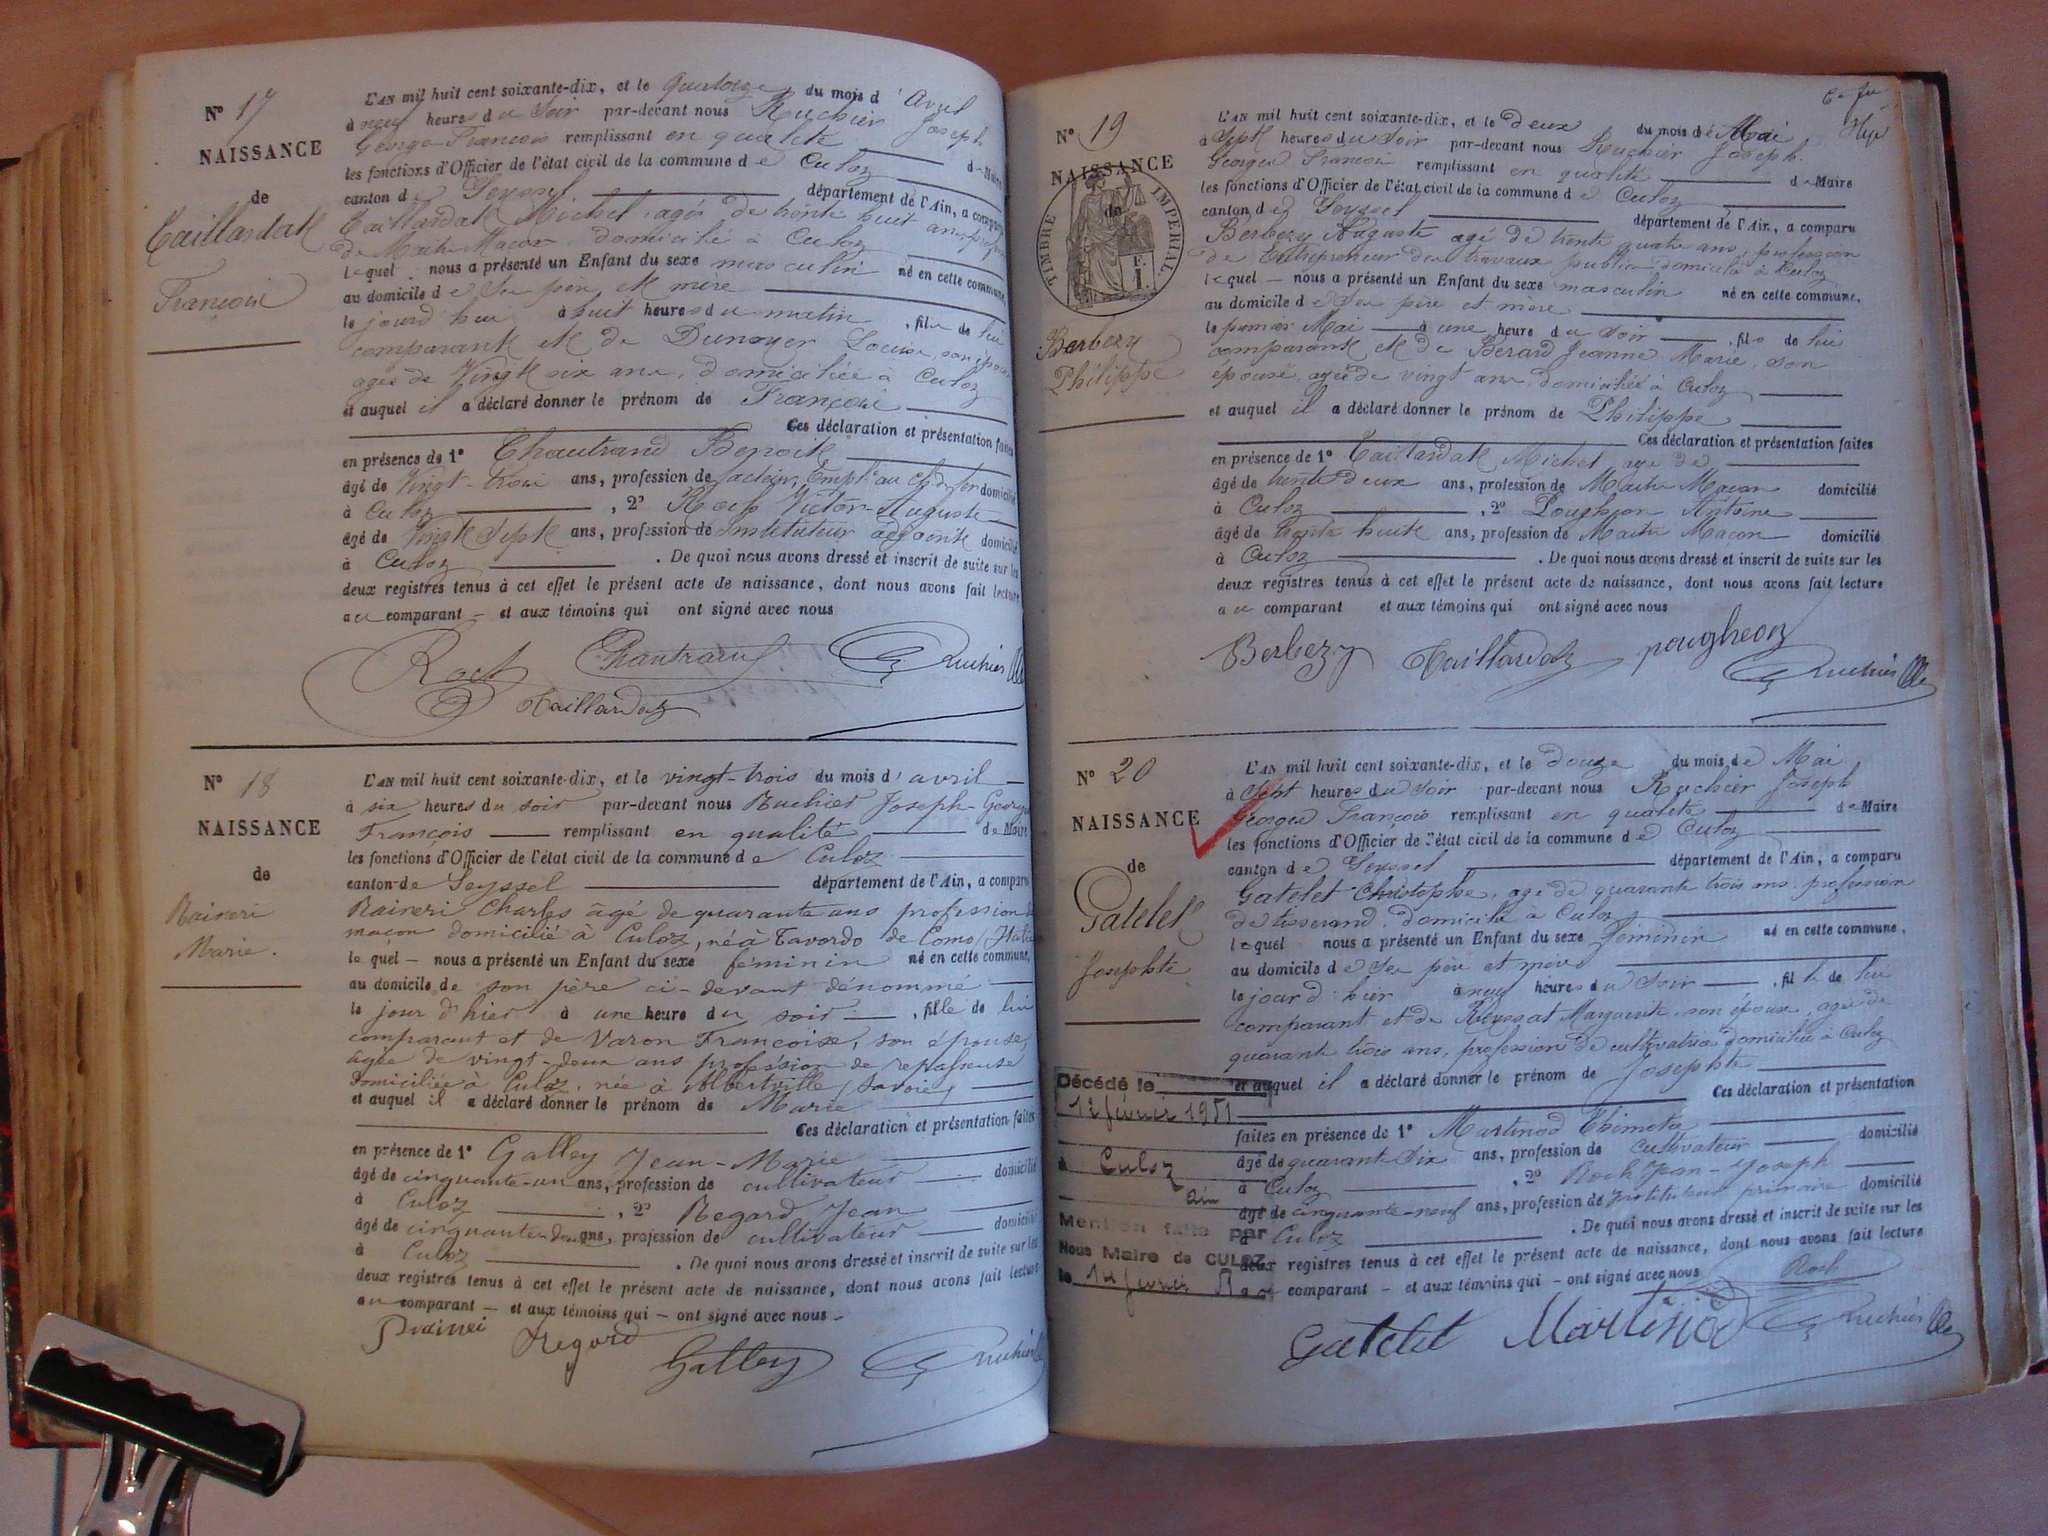 N° 17
NAISSANCE
de
Taillardat
François
L'AN mil huit cent soixante-dix, et le Quatorze du mois d'Avril
à neuf heures du Soir par-devant nous Ruchier Joseph
George François remplissant en qualité d Maire
les fonctions d'Officier de l'état civil de la commune de Culoz
canton de Seyssel département de l'Ain, a comparu
Taillardat Michel, agé de trente huit ans, profession
de Maitre Macon, domicilié à Culoz
lequel nous a présenté un Enfant du sexe masculin né en cette commune,
au domicile de Ses père et mère
le jourd'hui à huit heures du matin, fils de lui
comparant et de Dunoyer Louise, son épouse
agée de Vingt six ans, domiciliée à Culoz
et auquel il a déclaré donner le prénom de François
Ces déclaration et présentation faites
en présence de 1° Chautrand Benoit
âgé de Vingt-trois ans, profession de facteur, Empl. au Ch. de fer domicilié
à Culoz, 2° Roch Victor-Auguste
âgé de Vingt Sept ans, profession de Instituteur adjoint domicilié
à Culoz. De quoi nous avons dressé et inscrit de suite sur les
deux registres tenus à cet effet le présent acte de naissance, dont nous avons fait lecture
au comparant – et aux témoins qui ont signé avec nous
Roch Chautrand Ruchier
Taillardat
N° 18
NAISSANCE
de
Raineri
Marie.
L'AN mil huit cent soixante-dix, et le vingt-trois du mois d'avril
à six heures du soir par-devant nous Ruchier Joseph-George
François remplissant en qualité de Maire
les fonctions d'Officier de l'état civil de la commune de Culoz
canton de Seyssel département de l'Ain, a comparu
Raineri Charles âgé de quarante ans profession de
maçon domicilié à Culoz, né à Tavordo de Como (Italie
lequel – nous a présenté un Enfant du sexe féminin né en cette commune,
au domicile de son père ci-devant dénommé
le jour d'hier à une heure du soir, fille de lui
comparant et de Varon Françoise, son épouse,
agée de vingt-deux ans profession de repasseuse
domiciliée à Culoz, née à Albertville (Savoie)
et auquel il a déclaré donner le prénom de Marie
Ces déclaration et présentation faites
en présence de 1° Galley Jean-Marie
âgé de cinquante-un ans, profession de cultivateur domicilié
à Culoz, 2° Regard Jean
âgé de cinquante-deux ans, profession de cultivateur domicilié
à Culoz. De quoi nous avons dressé et inscrit de suite sur les
deux registres tenus à cet effet le présent acte de naissance, dont nous avons fait lecture
au comparant – et aux témoins qui – ont signé avec nous –
Raineri Regard
Galley Ruchier
N° 19
NAISSANCE
de
TIMBRE IMPERIAL.
F.
1.
Berbezy
Philippe
L'AN mil huit cent soixante-dix, et le deux du mois de Mai
à Sept heures du Soir par-devant nous Ruchier Joseph
Georges François remplissant en qualité d Maire
les fonctions d'Officier de l'état civil de la commune de Culoz
canton de Seyssel département de l'Ain, a comparu
Berbezy Auguste agé de trente quatre ans, profession
de Entrepreneur des travaux publics domicilié à Culoz
lequel – nous a présenté un Enfant du sexe masculin né en cette commune,
au domicile de Ses père et mère
le premier Mai à une heure du Soir, fils de lui
comparant et de Berard Jeanne Marie, son
épouse, agée de vingt ans, domiciliée à Culoz
et auquel il a déclaré donner le prénom de Philippe
Ces déclaration et présentation faites
en présence de 1° Taillardat Michel age de
âgé de trente deux ans, profession de Maitre Macon domicilié
à Culoz, 2° Pougheon Antoine
âgé de trente huit ans, profession de Maitre Macon domicilié
à Culoz. De quoi nous avons dressé et inscrit de suite sur les
deux registres tenus à cet effet le présent acte de naissance, dont nous avons fait lecture
au comparant et aux témoins qui ont signé avec nous
Berbezy Taillardat pougheon
Ruchier
N° 20
NAISSANCE
de
Gatelet
Josephte
L'AN mil huit cent soixante-dix, et le douze du mois de Mai
à Sept heures du Soir par-devant nous Ruchier Joseph
Georges François remplissant en qualité de Maire
les fonctions d'Officier de l'état civil de la commune de Culoz
canton de Seyssel département de l'Ain, a comparu
Gatelet Christophe, age de quarante trois ans profession
de tisserand, domicilié à Culoz
lequel nous a présenté un Enfant du sexe féminin né en cette commune,
au domicile de Ses père et mère
le jour d'hier à neuf heures du Soir, fille de lui
comparant et de Marguerite, son épouse, agée de
quarante trois ans, profession de cultivatrice domiciliée à Culoz
et auquel il a déclaré donner le prénom de Josephte
Ces déclaration et présentation
faites en présence de 1° Martinod
âgé de quarante-dix ans, profession de cultivateur domicilié
à Culoz, 2° Roch Jean-Joseph
âgé de cinquante-neuf ans, profession de Instituteur primaire domicilié
à Culoz. De quoi nous avons dressé et inscrit de suite sur les
deux registres tenus à cet effet le présent acte de naissance, dont nous avons fait lecture
au comparant – et aux témoins qui – ont signé avec nous
Roch
Gatelet Martinod Ruchier
Décédé le
12 février 1951
à Culoz
Ain
Mention faite par
Nous Maire de CULOZ
le 14 février 51